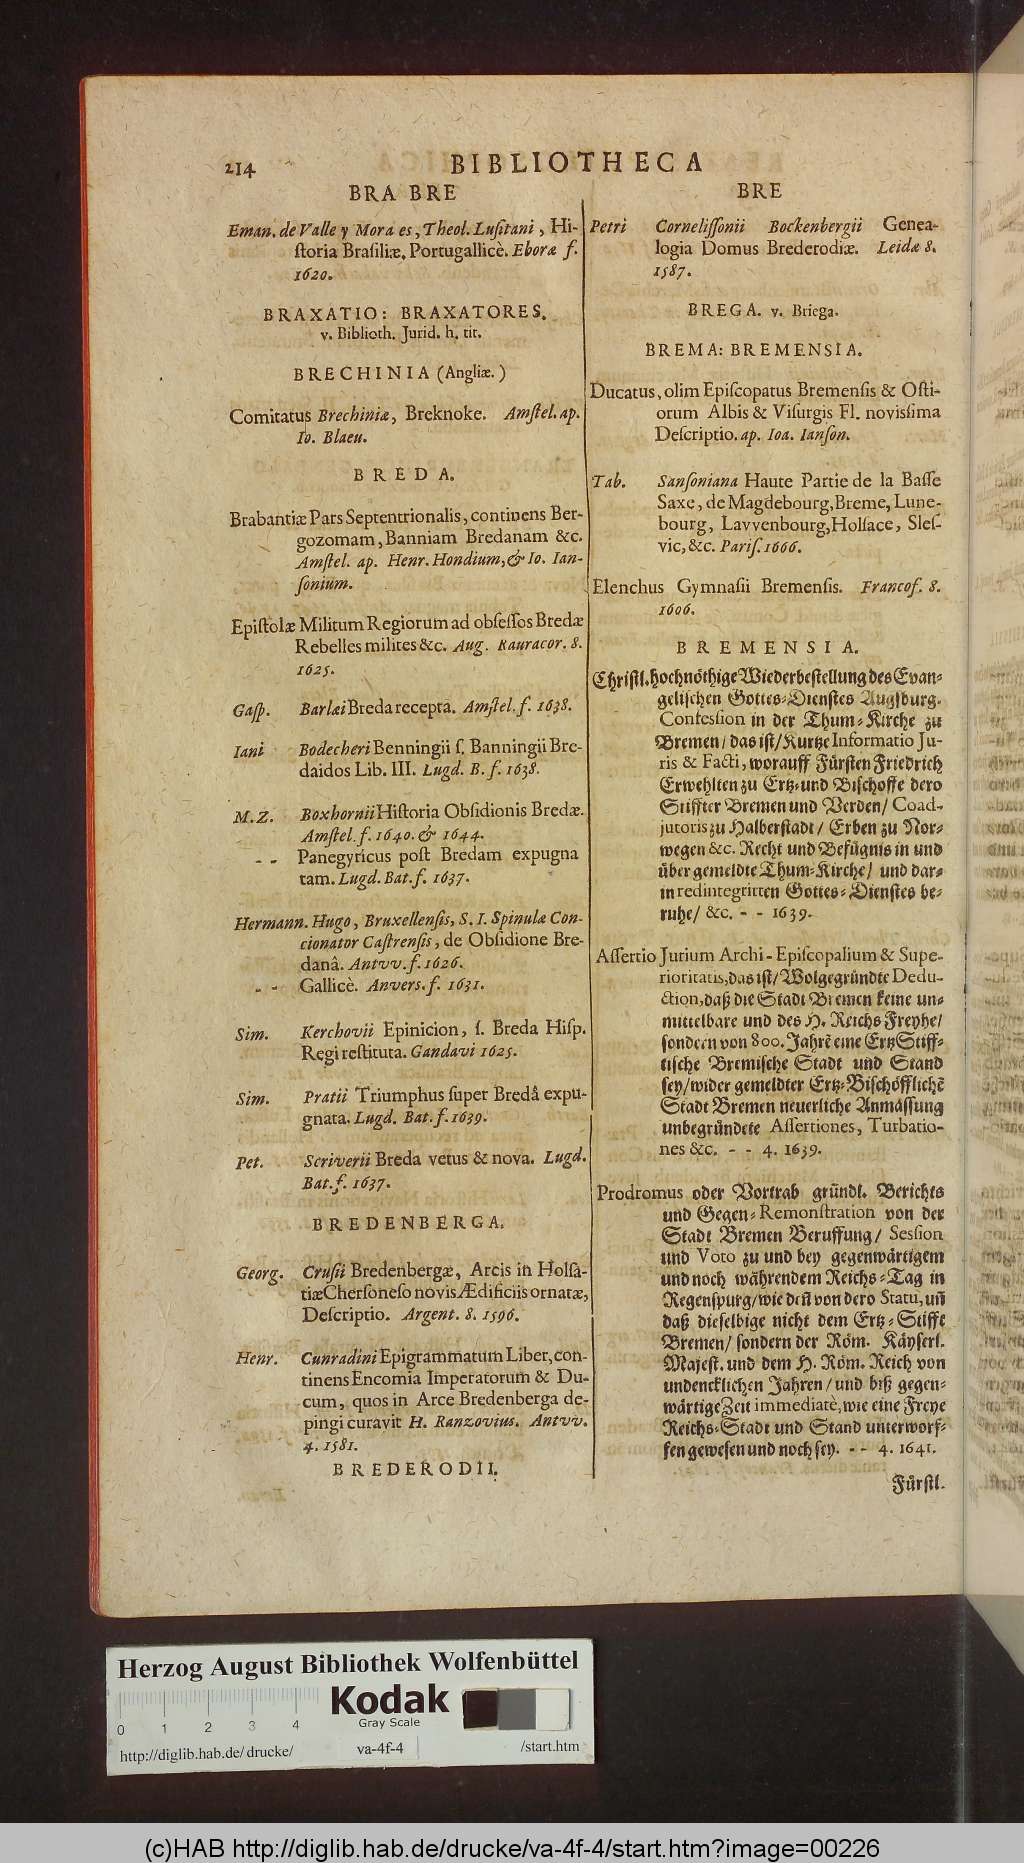 214
BIBLIOTHECA
BRA BRE
Eman. de Valle y Mora es, Theol. Luſitani, Hi-
ſtoria Braſiliæ, Portugallicè. Eboræ f.
1620.
BRAXATIO: BRAXATORES.
v. Biblioth. Jurid. h. tit.
BRECHINIA (Angliæ.)
Comitatus Brechiniæ, Breknoke. Amſtel. ap.
Io. Blaeu.
BREDA.
Brabantiæ Pars Septentrionalis, continens Ber-
gozomam, Banniam Bredanam &c.
Amſtel. ap. Henr. Hondium, & Io. Ian-
ſonium.
Epiſtolæ Militum Regiorum ad obſeſſos Bredæ
Rebelles milites &c. Aug. Rauracor. 8.
1625.
Gaſp. Barlæi Breda recepta. Amſtel. f. 1638.
Iani Bodecheri Benningii ſ. Banningii Bre-
daidos Lib. III. Lugd. B. f. 1638.
M. Z. Boxhornii Hiſtoria Obſidionis Bredæ.
Amſtel. f. 1640. & 1644.
- - Panegyricus poſt Bredam expugna
tam. Lugd. Bat. f. 1637.
Hermann. Hugo, Bruxellenſis, S. I. Spinulæ Con-
cionator Caſtrenſis, de Obſidione Bre-
danâ. Antvv. f. 1626.
- - Gallicè. Anvers. f. 1631.
Sim. Kerchovii Epinicion, ſ. Breda Hiſp.
Regi reſtituta. Gandavi 1625.
Sim. Pratii Triumphus ſuper Bredâ expu-
gnata. Lugd. Bat. f. 1639.
Pet. Scriverii Breda vetus & nova. Lugd.
Bat. f. 1637.
BREDENBERGA.
Georg. Cruſii Bredenbergæ, Arcis in Holſa-
tiæ Cherſoneſo novis Ædificiis ornatæ,
Deſcriptio. Argent. 8. 1596.
Henr. Cunradini Epigrammatum Liber, con-
tinens Encomia Imperatorum & Du-
cum, quos in Arce Bredenberga de-
pingi curavit H. Ranzovius. Antvv.
4. 1581.
BREDERODII.
BRE
Petri Corneliſſonii Bockenbergii Genea-
logia Domus Brederodiæ. Leidæ 8.
1587.
BREGA. v. Briega.
BREMA: BREMENSIA.
Ducatus, olim Epiſcopatus Bremenſis & Oſti-
orum Albis & Viſurgis Fl. noviſſima
Deſcriptio. ap. Ioa. Ianſon.
Tab. Sanſoniana Haute Partie de la Baſſe
Saxe, de Magdebourg, Breme, Lune-
bourg, Lavvenbourg, Holſace, Sleſ-
vic, &c. Pariſ. 1666.
Elenchus Gymnaſii Bremenſis. Francof. 8.
1606.
BREMENSIA.
Chriſtl. hochnöthige Wiederbeſtellung des Evan-
geliſchen Gottes-Dienſtes Augſburg.
Confeſſion in der Thum-Kirche zu
Bremen/ das iſt/ Kurtze Informatio Ju-
ris & Facti, worauff Fürſten Friedrich
Erwehlten zu Ertz- und Biſchoffe dero
Stiffter Bremen und Verden/ Coad-
jutoris zu Halberſtadt/ Erben zu Nor-
wegen &c. Recht und Befügnis in und
über gemeldte Thum-Kirche/ und dar-
in redintegritten Gottes-Dienſtes be-
ruhe/ &c. - - 1639.
Aſſertio Jurium Archi-Epiſcopalium & Supe-
rioritatis, das iſt/ Wolgegründte Dedu-
ction, daß die Stadt Bremen keine un-
mittelbare und des H. Reichs Freyhe/
ſondern von 800. Jahrē eine Ertz Stiff-
tiſche Bremiſche Stadt und Stand
ſey/ wider gemeldter Ertz-Biſchöfflichē
Stadt Bremen neuerliche Anmaſſung
unbegründete Aſſertiones, Turbatio-
nes &c. - - 4. 1639.
Prodromus oder Vortrab gründl. Berichts
und Gegen-Remonſtration von der
Stadt Bremen Beruffung/ Seſſion
und Voto zu und bey gegenwärtigem
und noch währendem Reichs-Tag in
Regenſpurg/ wie deñ von dero Statu, uñ
daß dieſelbige nicht dem Ertz-Stifft
Bremen/ ſondern der Röm. Käyſerl.
Majeſt. und dem H. Röm. Reich von
undencklichen Jahren/ und biß gegen-
wärtige Zeit immediatè, wie eine Freye
Reichs-Stadt und Stand unterworf-
fen geweſen und noch ſey. - - 4. 1641.
Fürſtl.
Herzog August Bibliothek Wolfenbüttel
Kodak
Gray Scale
0 1 2 3 4
http://diglib.hab.de/drucke/ va-4f-4 /start.htm
(c)HAB http://diglib.hab.de/drucke/va-4f-4/start.htm?image=00226